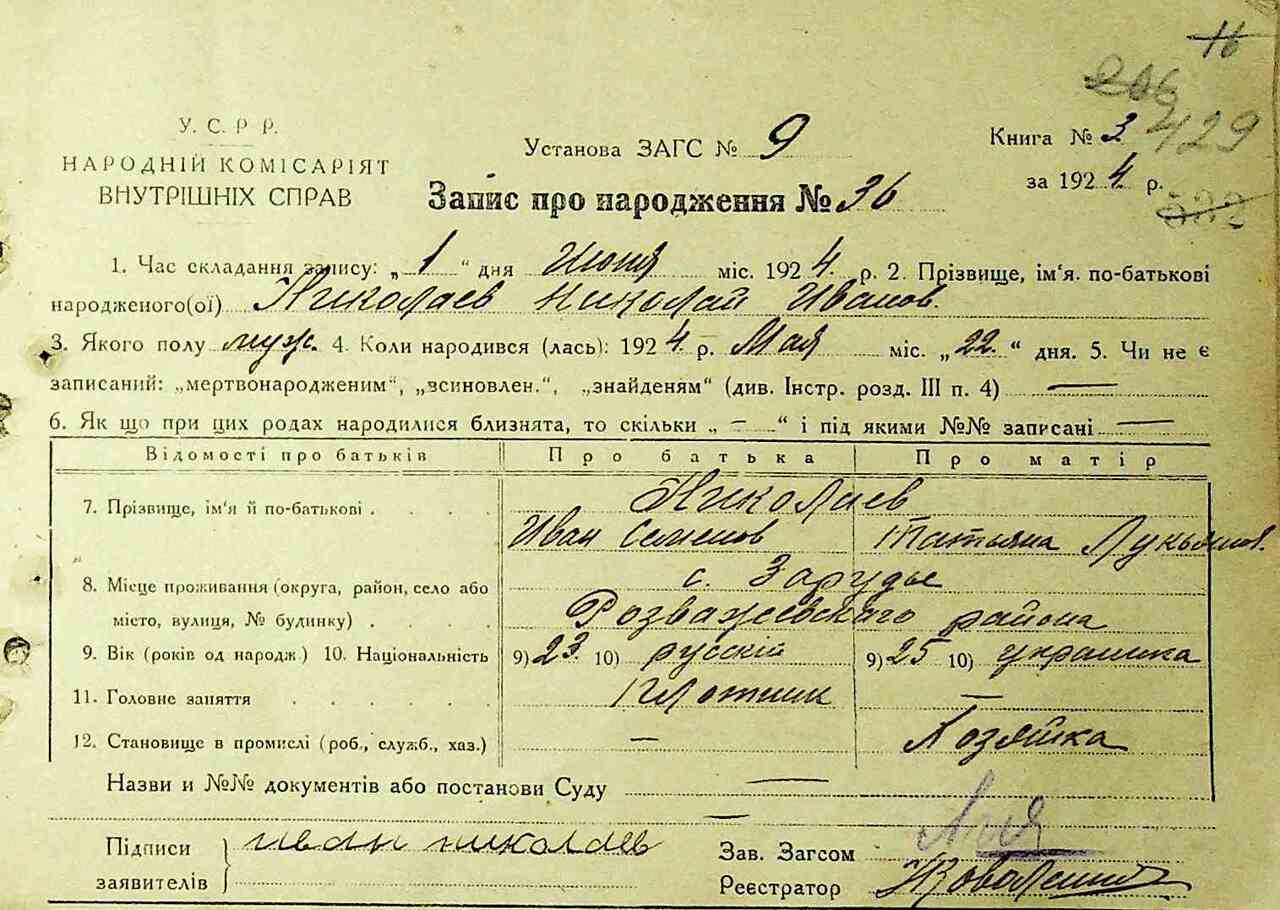 16
206
429
У. С. Р Р.
НАРОДНІЙ КОМІСАРІЯТ
ВНУТРІШНІХ СПРАВ
Установа ЗАГС № 9
Книга № 3
за 1924 р.
532
Запис про народження № 36
1. Час складання запису: „1“ дня Июня міс. 1924 р. 2. Прізвище, ім'я. по-батькові
народженого(ої) Николаев Николай Иванов.
3. Якого полу муж. 4. Коли народився (лась): 1924 р. Мая міс. „22.“ дня. 5. Чи не є
записаний: „мертвонародженим“, „всиновлен.“, „знайденям“ (див. Інстр. розд. III п. 4) —
6. Як що при цих родах народилися близнята, то скільки „ — “ і під якими №№ записані —
Відомості про батьків Про батька Про матір
7. Прізвище, ім'я й по-батькові . . . . Николаев
Иван Семенов Татьяна Лукьянов.
8. Місце проживання (округа, район, село або с. Зарудье
місто, вулиця, № будинку) . . . . Розважевского района
9. Вік (років од народж) 10. Національність 9) 23. 10) русскій 9) 25 10) украинка
11. Головне заняття . . . . . . Плотник —
12. Становище в промислі (роб., служб., хаз.) — Хозяйка
Назви и №№ документів або постанови Суду —
—
Підписи иван николаев
заявителів
Зав. Загсом
Реєстратор